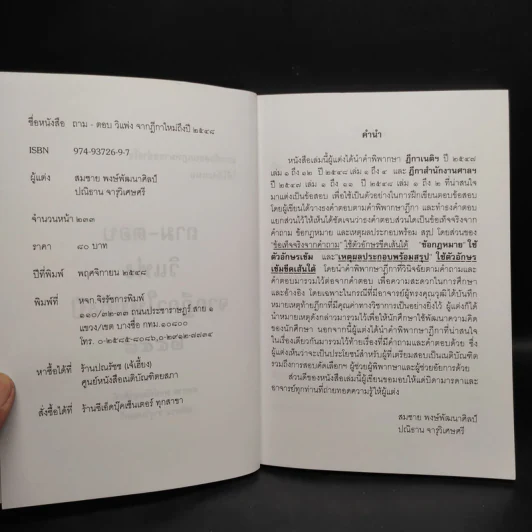 ชื่อหนังสือ ถาม - ตอบ วิแพ่ง จากฎีกาใหม่ถึงปี ๒๕๔๘
ISBN 974-93726-9-7
ผู้แต่ง สมชาย พงษ์พัฒนาศิลป์
ปณิธาน จารุวิเศษศรี
จำนวนหน้า ๒๓๓
ราคา ๘๐ บาท
ปีที่พิมพ์ พฤศจิกายน ๒๕๔๘
พิมพ์ที่ หจก.จิรรัชการพิมพ์
๑๑๐/๓๒-๓๓ ถนนประชาราษฎร์ สาย ๑
แขวง/เขต บางซื่อ กทม.๑๐๘๐๐
โทร. ๐-๒๕๘๕-๘๐๘๖,๐-๒๙๑๒-๘๘๓๔
หาซื้อได้ที่ ร้านปณรัชช (เจ๊เฮี้ยง)
ศูนย์หนังสือเนติบัณฑิตยสภา
สั่งซื้อได้ที่ ร้านซีเอ็ดบุ๊คเซ็นเตอร์ ทุกสาขา
คำนำ
หนังสือเล่มนี้ผู้แต่งได้นำคำพิพากษา ฎีกาเนติฯ ปี ๒๕๔๗
เล่ม ๑ ถึง ๑๒ ปี ๒๕๔๘ เล่ม ๑ ถึง ๔ และ ฎีกาสำนักงานศาลฯ
ปี ๒๕๔๗ เล่ม ๑ ถึง ๑๑ ปี ๒๕๔๘ เล่ม ๑ ถึง ๒ ที่น่าสนใจ
มาแต่งเป็นข้อสอบ เพื่อใช้เป็นตัวอย่างในการฝึกเขียนตอบข้อสอบ
โดยผู้เขียนได้วางองค์คำตอบตามคำพิพากษาฎีกา และทำธงคำตอบ
แยกส่วนไว้ให้เห็นได้ชัดเจนว่าธงคำตอบส่วนใดเป็นข้อเท็จจริงจาก
คำถาม ข้อกฎหมาย และเหตุผล สรุป โดยส่วนของ
"ข้อเท็จจริงจากคำถาม" ใช้ตัวอักษรขีดเส้นใต้ "ข้อกฎหมาย" ใช้
ตัวอักษรเข้ม และ"เหตุผลประกอบพร้อมสรุป" ใช้ตัวอักษร
เข้มขีดเส้นใต้ โดยนำคำพิพากษาฎีกาที่วินิจฉัยตามคำถามและ
คำตอบมารวมไว้ต่อจากคำตอบ เพื่อความสะดวกในการศึกษา
และอ้างอิง โดยเฉพาะในกรณีที่มีอาจารย์ผู้ทรงคุณวุฒิได้บันทึก
หมายเหตุท้ายฎีกาที่มีคุณค่าทางวิชาการเป็นอย่างยิ่งไว้ ผู้แต่งก็ได้
นำหมายเหตุดังกล่าวมารวมไว้เพื่อให้นักศึกษาใช้พัฒนาความคิด
ของนักศึกษา นอกจากนี้ผู้แต่งได้นำคำพิพากษาฎีกาที่น่าสนใจ
ในเรื่องเดียวกันมารวมไว้ท้ายเรื่องที่มีคำถามและคำตอบด้วย ซึ่ง
ผู้แต่งเห็นว่าจะเป็นประโยชน์สำหรับผู้ที่เตรียมสอบเป็นเนติบัณฑิต
รวมถึงการสอบคัดเลือกฯ ผู้ช่วยผู้พิพากษาและผู้ช่วยอัยการด้วย
ส่วนดีของหนังสือเล่มนี้ผู้เขียนขอมอบให้แด่บิดามารดาและ
อาจารย์ทุกท่านที่ถ่ายทอดความรู้ให้ผู้แต่ง
สมชาย พงษ์พัฒนาศิลป์
ปณิธาน จารุวิเศษศรี